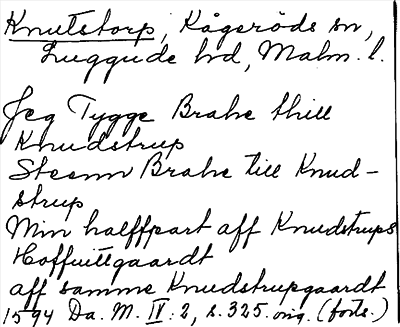 Knutstorp, Kågeröds sn,
Luggude hd, Malm. l.
Jeg Tygge Brahe thill
Knudstrup
Steenn Brahe till Knud-
strup
Min halffpart aff Knudstrups
Hoffuittgaardt
aff samme Knudstrupgaardt
1594 Da. M. IV: 2, s. 325. orig. (forts.)